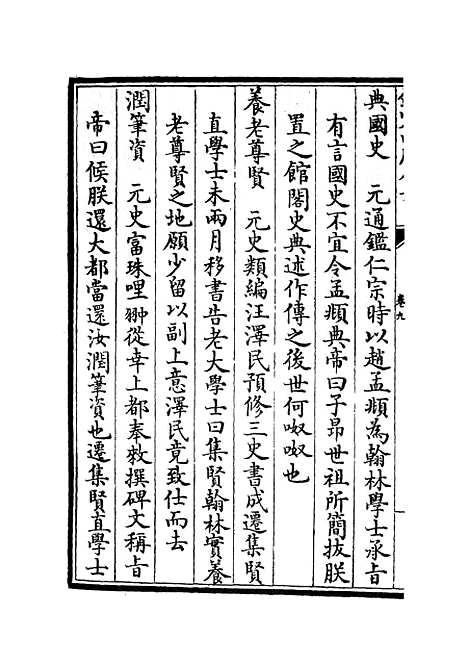 卷九
典國史　元通鑑仁宗時以趙孟頫為翰林學士承旨
有言國史不宜令孟頫典帝曰子昻世祖所簡拔朕
置之館閣史典述作傳之後世何呶呶也
養老尊賢　元史類編汪澤民預修三史書成遷集賢
直學士未兩月移書告老大學士曰集賢翰林實養
老尊賢之地願少留以副上意澤民竟致仕而去
潤筆資　元史富珠哩翀從幸上都奉敕撰碑文稱旨
帝曰候朕還大都當還汝潤筆資也遷集賢直學士